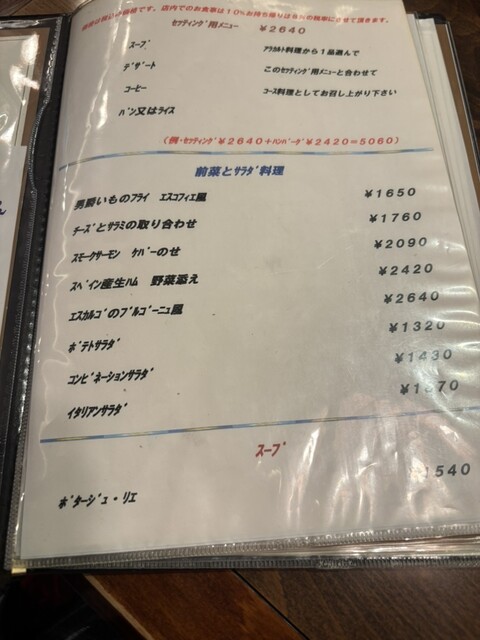 店内でのお食事は10%お持ち帰りは8%の税率にさせて頂きます。
セッティング用メニュー ¥2640
スープ
アラカルト料理から1品選んで
デザート
このセッティング用メニューと合わせて
コーヒー
コース料理としてお召し上がり下さい
パン又はライス
(例・セッティング¥2640+ハンバーグ¥2420=5060)
前菜とサラダ料理
男爵いものフライ エスコフィエ風 ¥1650
チーズとサラミの取り合わせ ¥1760
スモークサーモン ケパーのせ ¥2090
スペイン産生ハム 野菜添え ¥2420
エスカルゴのブルゴーニュ風 ¥2640
ポテトサラダ ¥1320
コンビネーションサラダ ¥1430
イタリアンサラダ
スープ
ポタージュ・リエ 1540